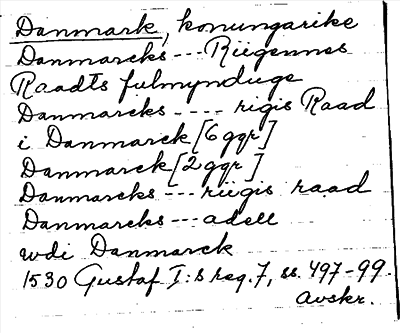 Danmark, konungarike
Danmarcks --- Riigennes
Raadts fulmynduge
Danmarcks ---- rigis Raad
i Danmarck [6 ggr]
Danmarck [2 ggr]
Danmarcks --- riigis raad
Danmarcks --- adell
wdi Danmarck
1530 Gustaf I:s reg. 7, ss. 497-99.
avskr.